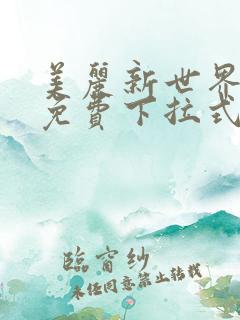 美麗新世界
免費下拉式
臨窗紗
未经同意禁止转载